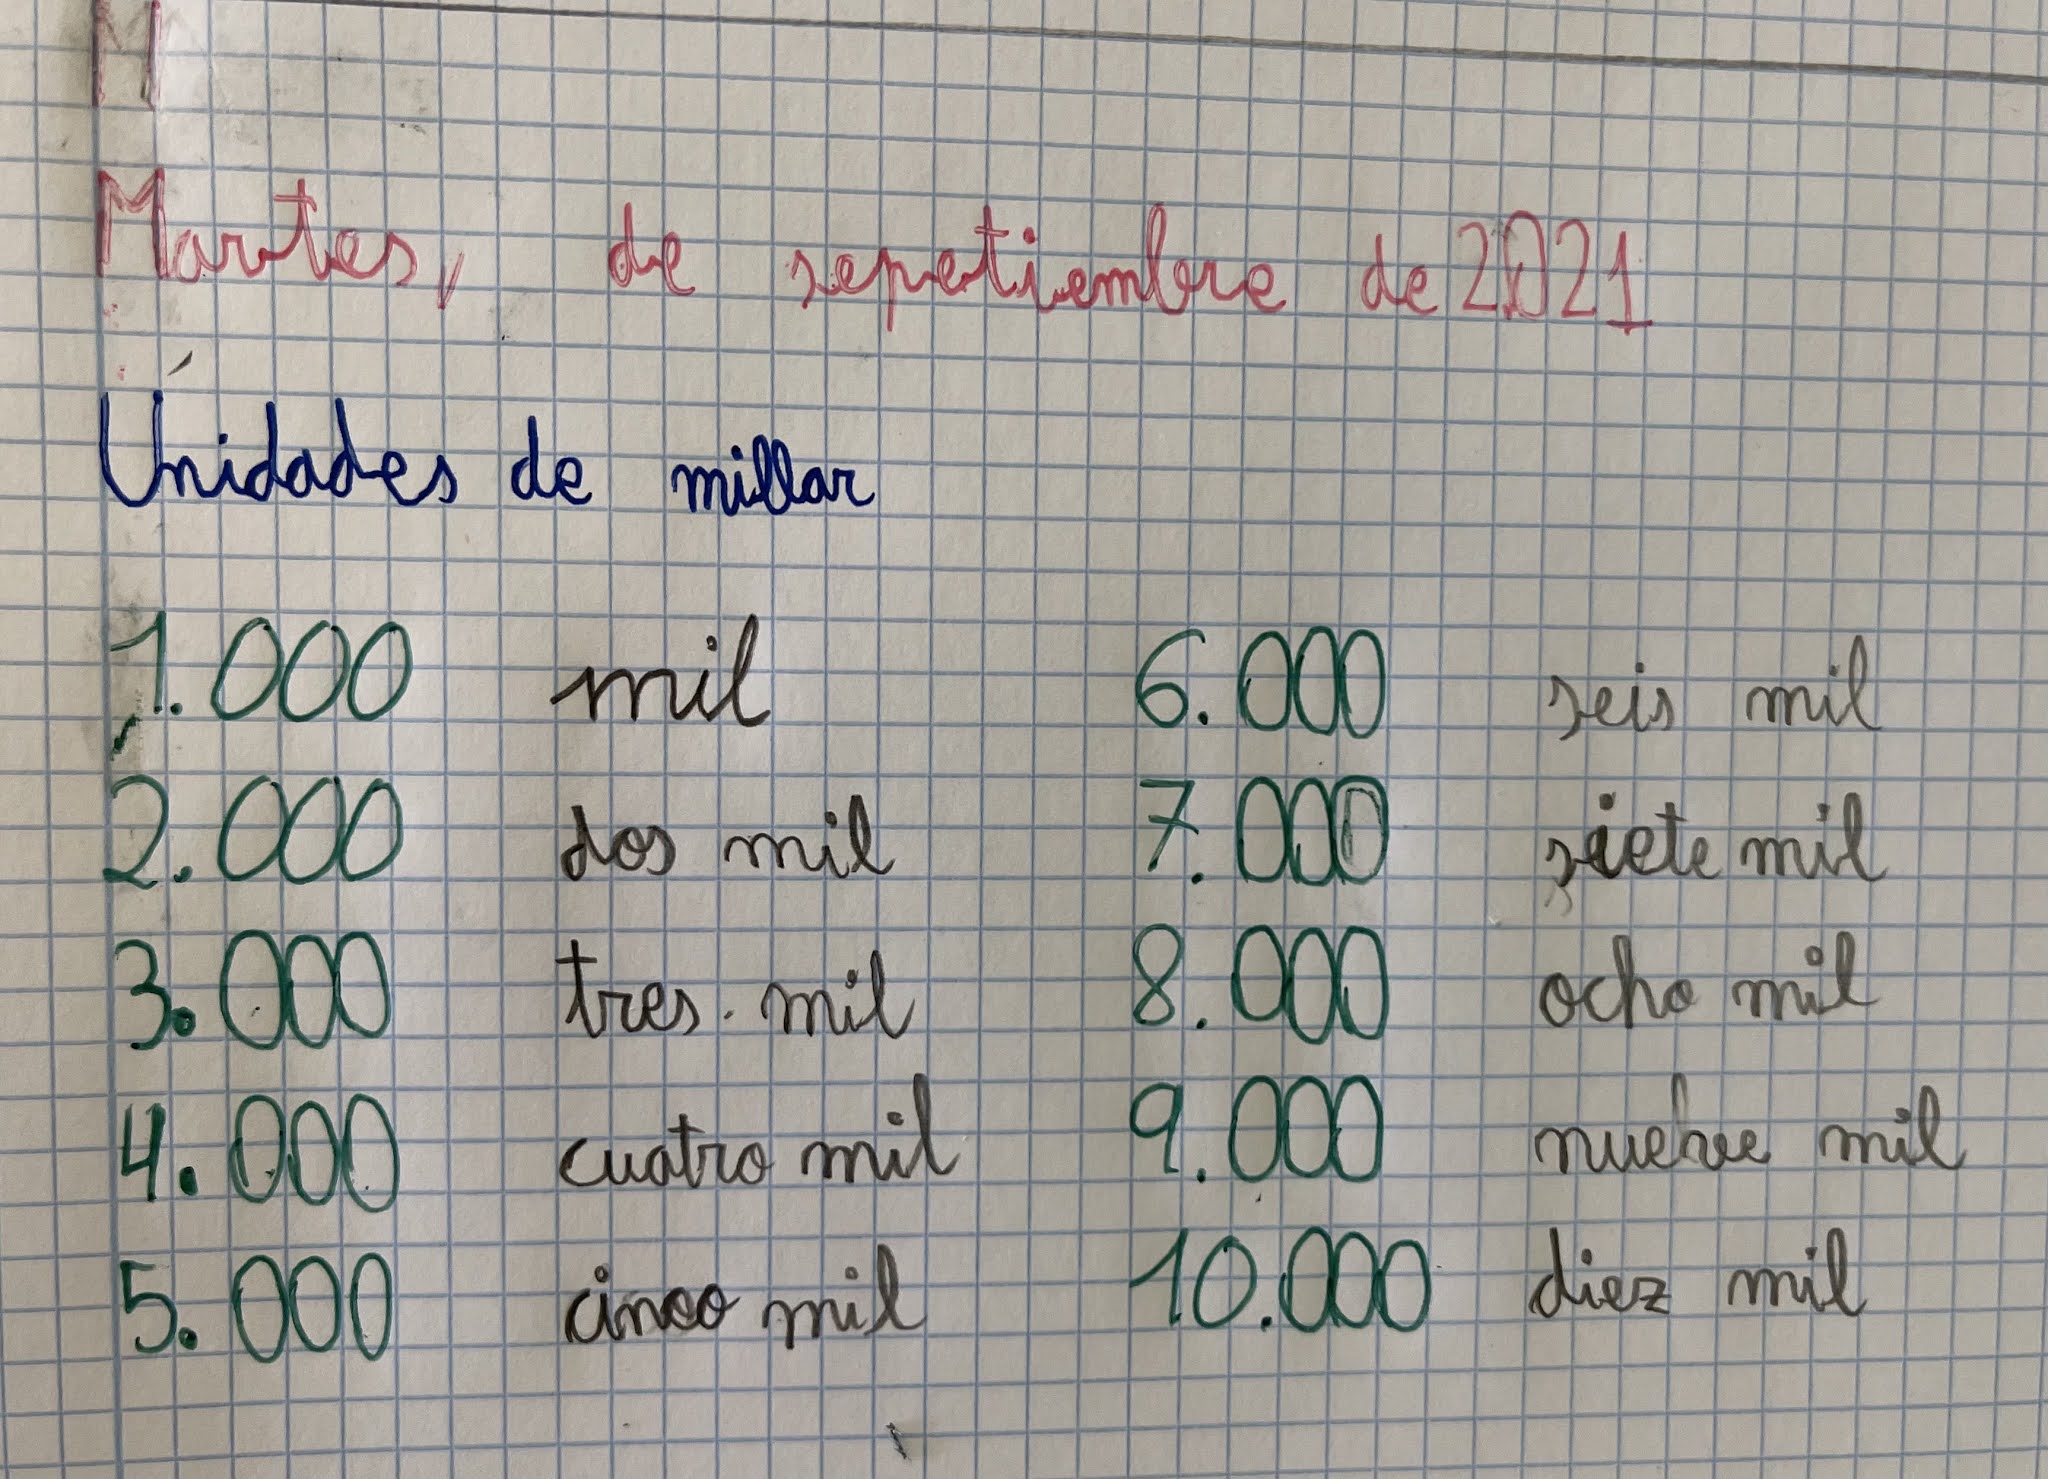 M
Martes, de sepetiembre de 2021
Unidades de millar
1.000 mil 6.000 seis mil
2.000 dos mil 7.000 siete mil
3.000 tres. mil 8.000 ocho mil
4.000 cuatro mil 9.000 nueve mil
5.000 cinco mil 10.000 diez mil